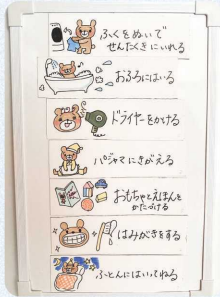 ふくをぬいで
せんたくきにいれる
おふろにはいる
ドライヤーをかける
パジャマにきがえる
おもちゃとえほんを
かたづける
はみがきをする
ふとんにはいってねる